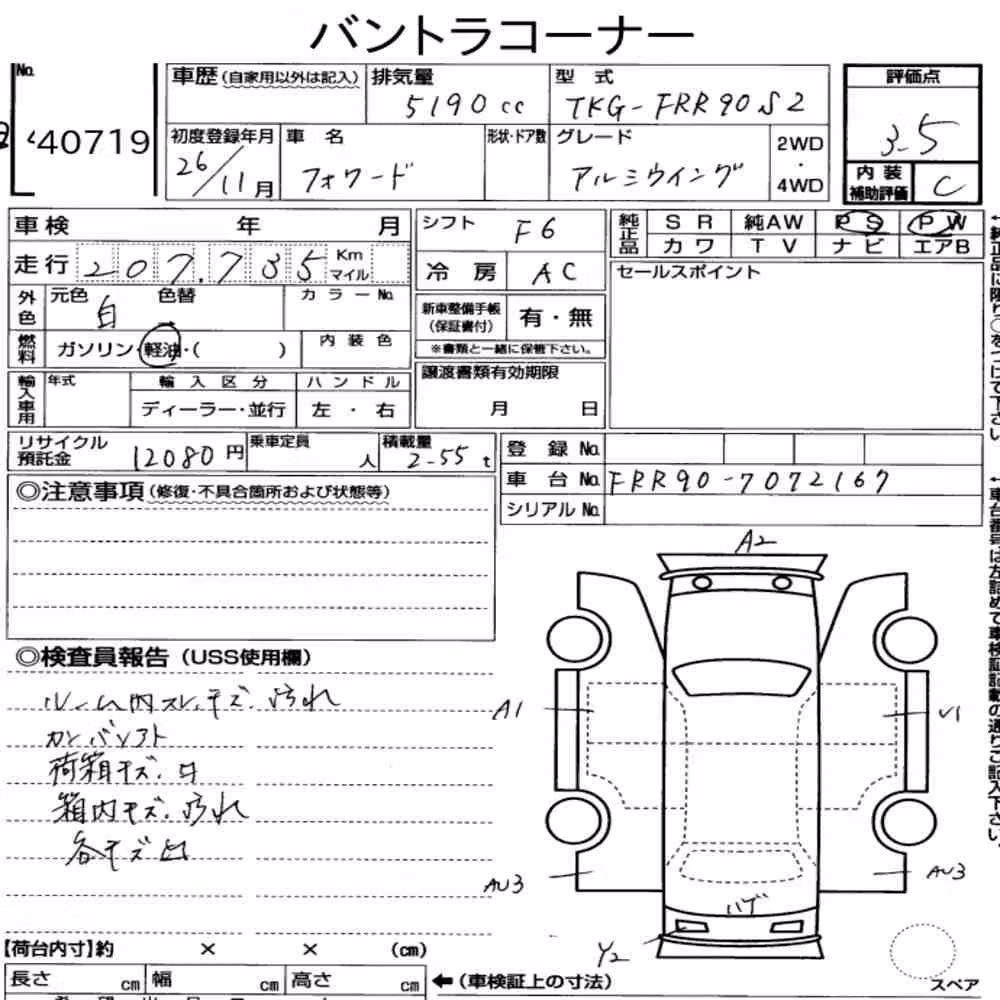 バントラコーナー
No.
40719
車歴 (自家用以外は記入)
排気量
5190cc
型 式
TKG-FRR90S2
評価点
3.5
初度登録年月
26/11月
車 名
フォワード
形状・ドア数
グレード
アルミウイング
2WD
・
4WD
内 装
補助評価
C
車検 年 月
シフト
F6
純正品
S R 純AW P S P W
カワ T V ナビ エアB
走行 207,735 Km マイル
冷 房
AC
セールスポイント
外色
元色
白
色替
カラーNo.
新車整備手帳
(保証書付)
有・無
※書類と一緒に保管下さい。
燃料
ガソリン・軽油・( )
内 装 色
輸入車用
年式
輸 入 区 分
ハ ン ド ル
ディーラー・並行
左 ・ 右
譲渡書類有効期限
月 日
リサイクル
預託金
12080円
乗車定員
人
積載量
2.55 t
登 録 No.
車 台 No.
FRR90-7072167
シリアルNo.
◎注意事項 (修復・不具合箇所および状態等)
◎検査員報告 (USS使用欄)
ルーム内スレ、キズ、汚れ
カンバンソフト
荷箱キズ、凹
箱内キズ、汚れ
各キズ凹
A2
A1
AU3
AU3
ハゲ
Y2
スペア
【荷台内寸】約 × × (cm)
長さ cm 幅 cm 高さ cm
←(車検証上の寸法)
←純正品に限り○をつけて下さい。
←車台番号は左詰めで車検証記載の通りご記入下さい。